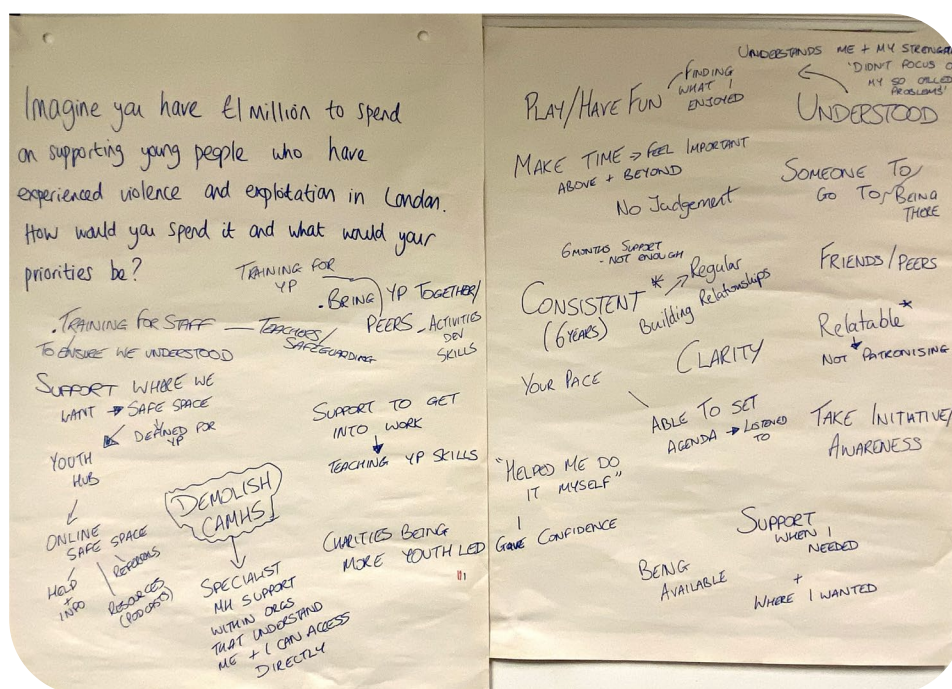 Imagine you have £1 million to spend
on supporting young people who have
experienced violence and exploitation in London.
How would you spend it and what would your
priorities be?
TRAINING FOR
YP
. BRING YP TOGETHER/
PEERS - ACTIVITIES
DEV
SKILLS
. TRAINING FOR STAFF — TEACHERS/
SAFEGUARDING
TO ENSURE WE UNDERSTOOD
SUPPORT WHERE WE
WANT → SAFE SPACE
DEFINED FOR
YP
YOUTH
HUB
ONLINE
SAFE SPACE
HELP
+
INFO
REFERRALS
RESOURCES
(PODCASTS)
DEMOLISH
CAMHS
SPECIALIST
MH SUPPORT
WITHIN ORGS
THAT UNDERSTAND
ME + I CAN ACCESS
DIRECTLY
SUPPORT TO GET
INTO WORK
TEACHING YP SKILLS
CHARITIES BEING
MORE YOUTH LED
PLAY/HAVE FUN
FINDING
WHAT I
ENJOYED
UNDERSTANDS ME + MY STRENGTH
'DIDN'T FOCUS O
MY SO CALLED
PROBLEMS'
UNDERSTOOD
MAKE TIME → FEEL IMPORTANT
ABOVE + BEYOND
No Judgement
SOMEONE TO
GO TO/BEING
THERE
6 MONTHS SUPPORT
- NOT ENOUGH
CONSISTENT *
(6 YEARS)
Regular
Building Relationships
FRIENDS/PEERS
Relatable *
NOT PATRONISING
CLARITY
YOUR PACE
ABLE TO SET
AGENDA → LISTENED
TO
TAKE INITIATIVE/
AWARENESS
"HELPED ME DO
IT MYSELF"
GAVE CONFIDENCE
SUPPORT
WHEN I
NEEDED
+
WHERE I WANTED
BEING
AVAILABLE